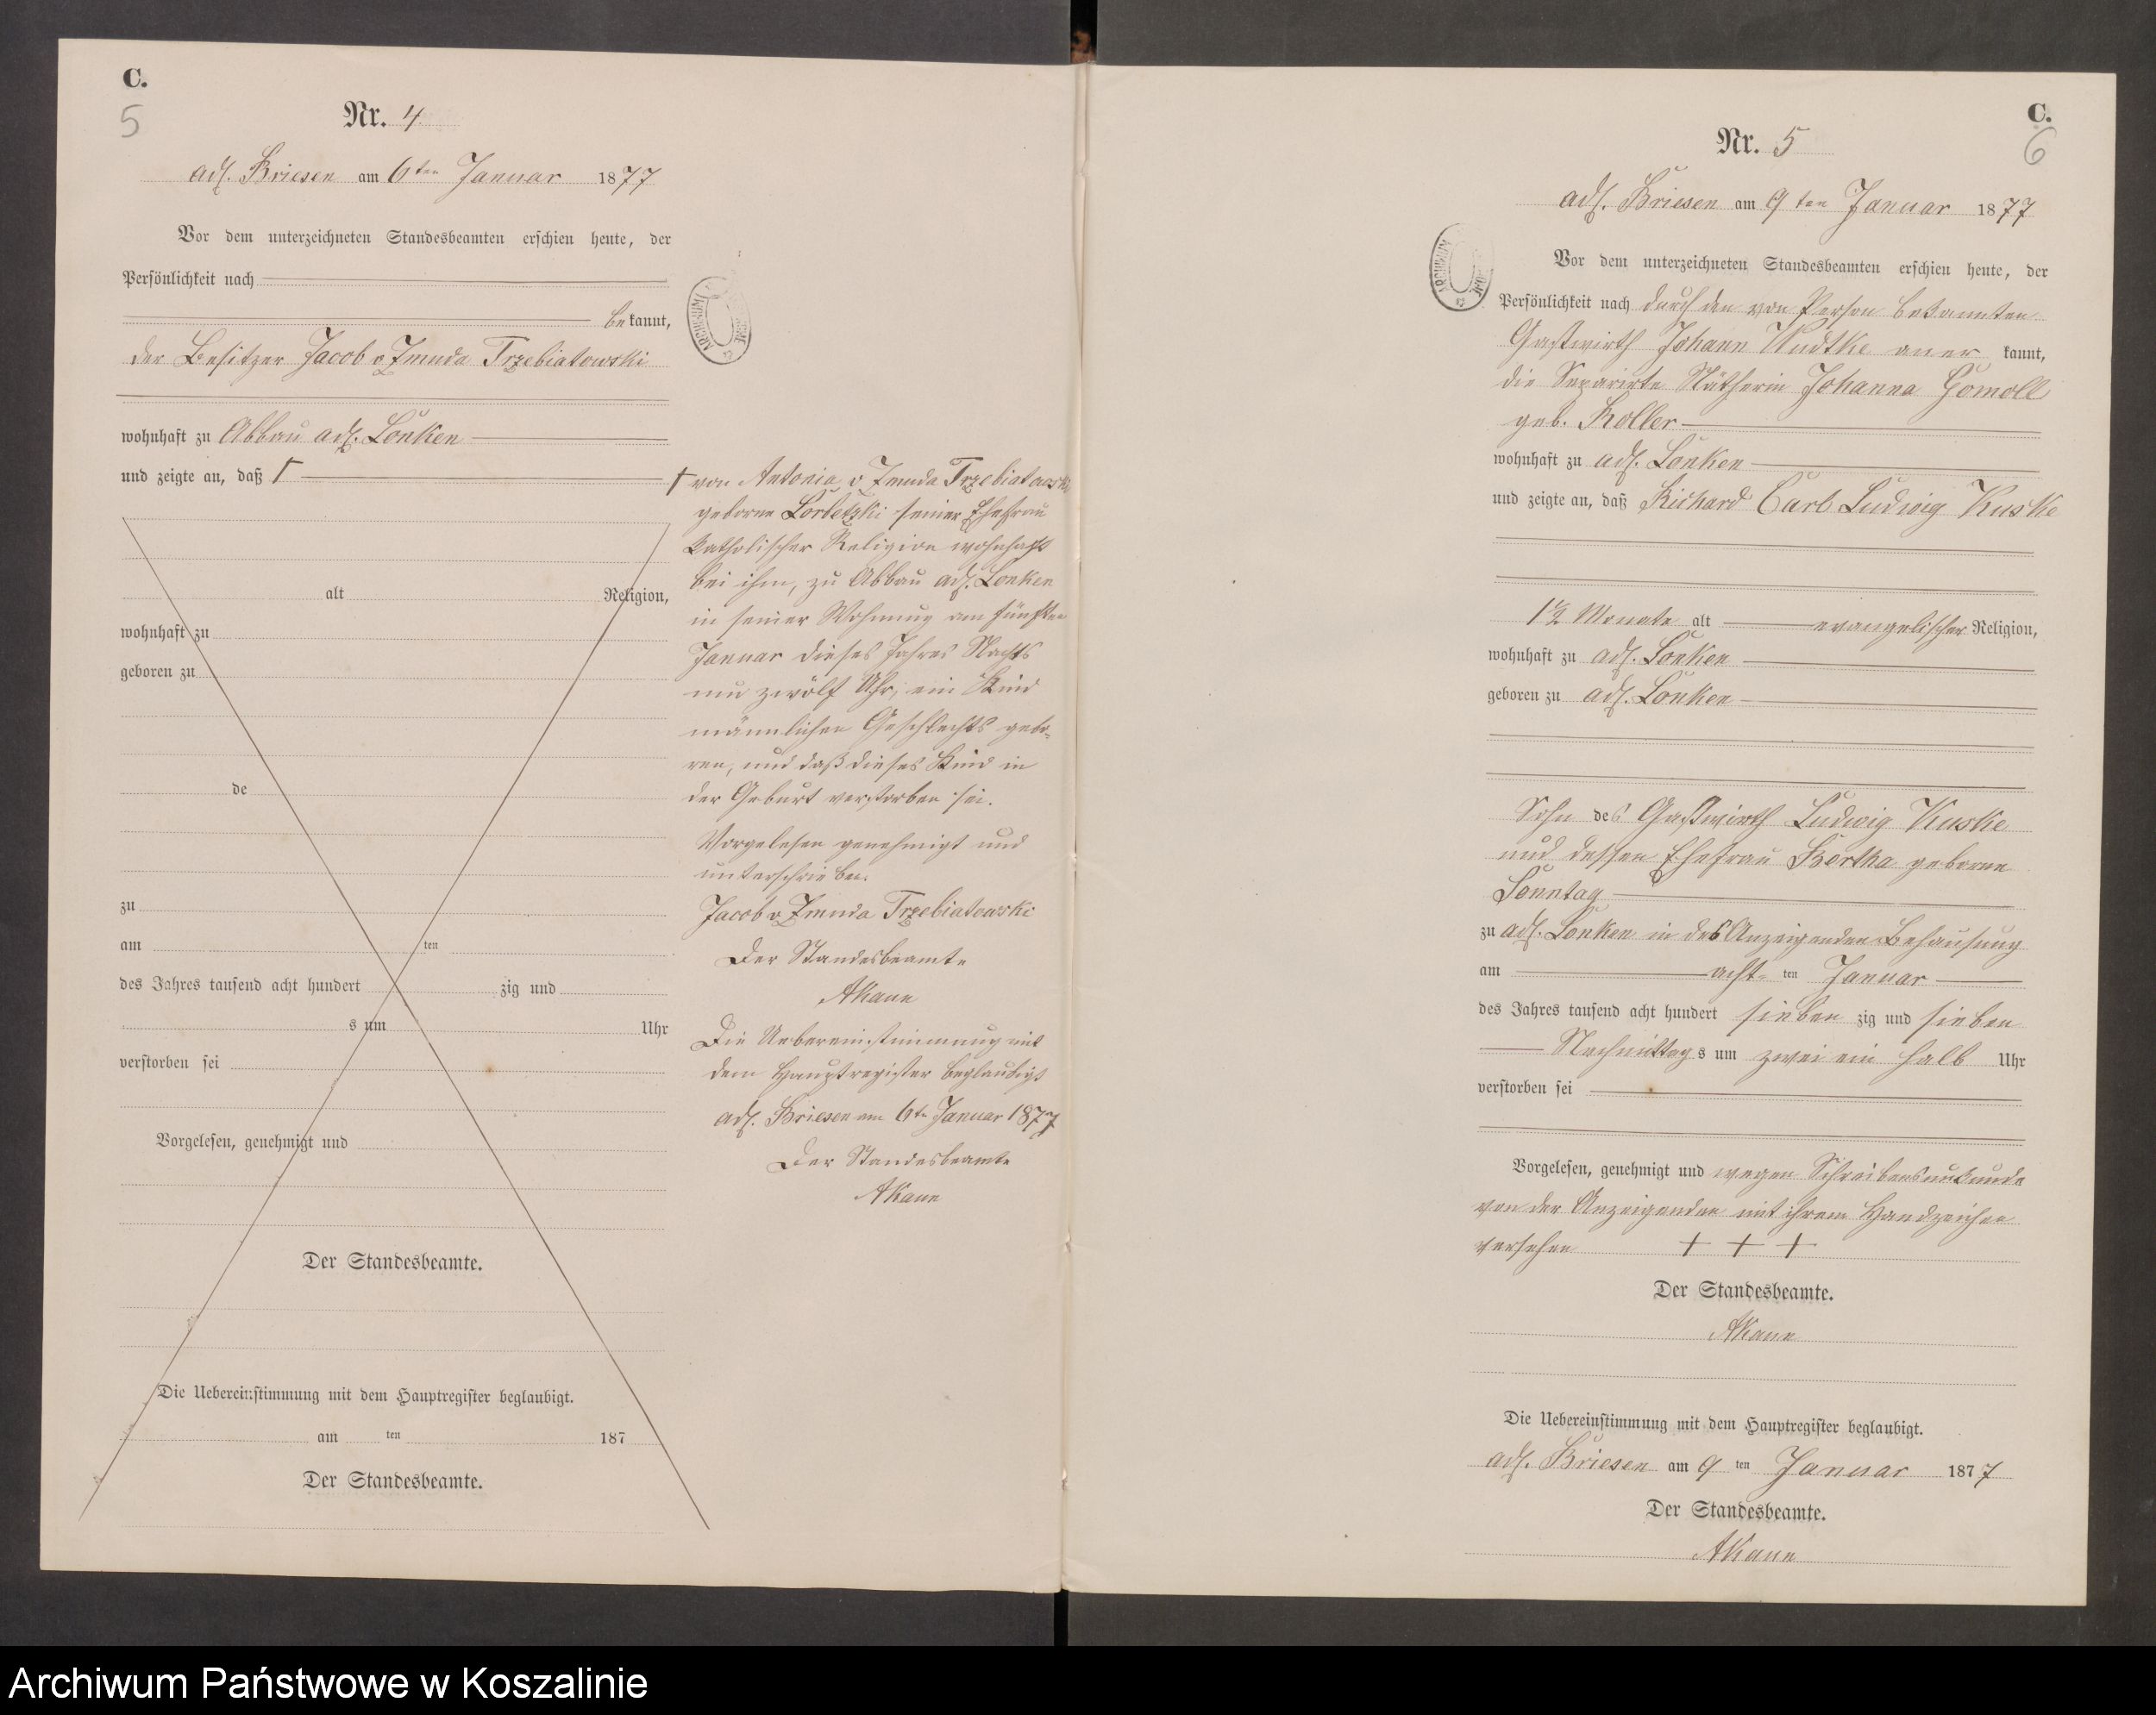 C.
5
Nr. 4
adl. Briesen am 6ten Januar 1877
Vor dem unterzeichneten Standesbeamten erschien heute, der
Persönlichkeit nach
bekannt,
der Besitzer Jacob v Zmuda Trzebiatowski
wohnhaft zu Abbau adl. Lonken
und zeigte an, daß Γ
alt Religion,
wohnhaft zu
geboren zu
de
zu
am ten
des Jahres tausend acht hundert zig und
s um Uhr
verstorben sei
Vorgelesen, genehmigt und
Der Standesbeamte.
Die Uebereinstimmung mit dem Hauptregister beglaubigt.
am ten 187
Der Standesbeamte.
Γ von Antonia v Zmuda Trzebiatowski
geborne Lorbetzki seiner Ehefrau
katholischer Religion wohnhaft
bei ihm, zu Abbau adl. Lonken
in seiner Wohnung am fünften
Januar dieses Jahres Nachts
um zwölf Uhr, ein Kind
männlichen Geschlechts gebo-
ren, und daß dieses Kind in
der Geburt verstorben sei.
Vorgelesen genehmigt und
unterschrieben.
Jacob v Zmuda Trzebiatowski
Der Standesbeamte
AKann
Die Uebereinstimmung mit
dem Hauptregister beglaubigt
adl. Briesen am 6te Januar 1877
Der Standesbeamte
AKann
C.
6
Nr. 5
adl. Briesen am 9 ten Januar 1877
Vor dem unterzeichneten Standesbeamten erschien heute, der
Persönlichkeit nach durch den von Person bekannten
Gastwirth Johann Wudtke aner kannt,
die Separirte Nätherin Johanna Gomoll
geb. Koller
wohnhaft zu adl. Lonken
und zeigte an, daß Richard Carl Ludwig Kuske
1½ Monate alt evangelischer Religion,
wohnhaft zu adl. Lonken
geboren zu adl. Lonken
Sohn des Gastwirth Ludwig Kuske
und dessen Ehefrau Bertha geborne
Sonntag
zu adl. Lonken in des Anzeigenden Behausung
am acht- ten Januar
des Jahres tausend acht hundert sieben zig und sieben
Nachmittag s um zwei ein halb Uhr
verstorben sei
Vorgelesen, genehmigt und wegen Schreibensunkunde
von der Anzeigenden mit ihrem Handzeichen
versehen + + +
Der Standesbeamte.
AKann
Die Uebereinstimmung mit dem Hauptregister beglaubigt.
adl. Briesen am 9 ten Januar 1877
Der Standesbeamte.
AKann
Archiwum Państwowe w Koszalinie